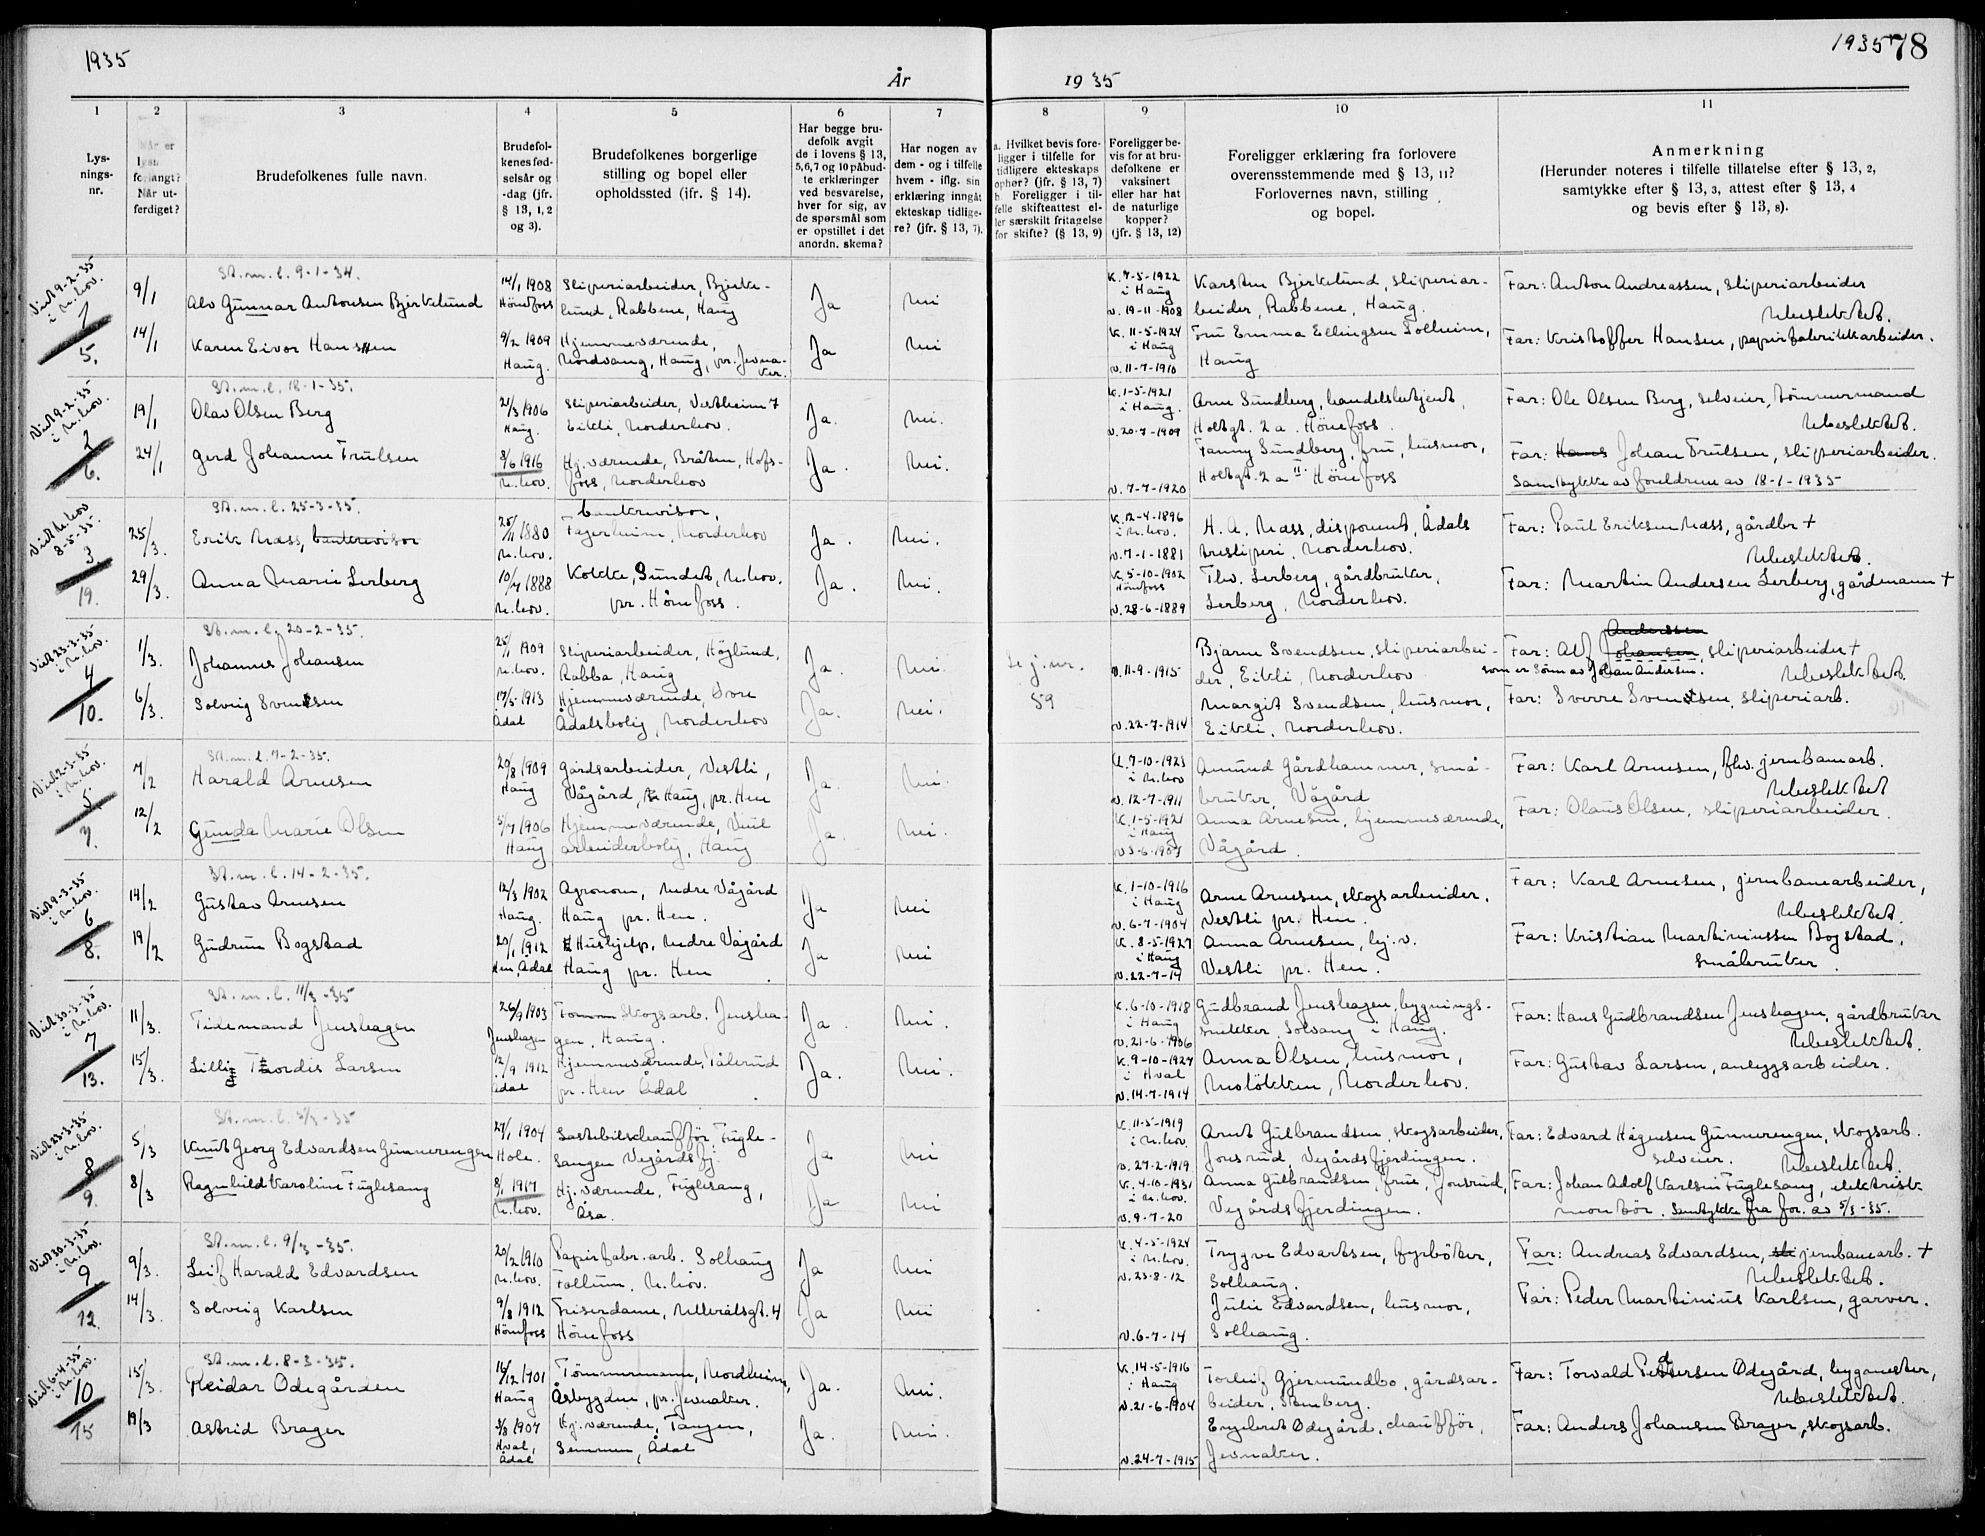 1935
1935
78
År
1935
1
2
3
4
5
6
7
8
9
10
11
Lysningsnr.
Når er lysn. forlangt? Når utferdiget?
Brudefolkenes fulle navn.
Brudefolkenes fødselsår og -dag (jfr. § 13, 1, 2 og 3).
Brudefolkenes borgerlige stilling og bopel eller opholdssted (jfr. § 14).
Har begge brudefolk avgit de i lovens § 13, 5,6,7 og 10 påbudte erklæringer ved besvarelse, hver for sig, av de spørsmål som er opstillet i det anordn. skema?
Har nogen av dem - og i tilfelle hvem - iflg. sin erklæring inngått ekteskap tidligere? (jfr. § 13, 7).
a. Hvilket bevis foreligger i tilfelle for tidligere ekteskaps ophør? (jfr. § 13, 7) b. Foreligger i tilfelle skifteattest eller særskilt fritagelse for skifte? (§ 13, 9)
Foreligger bevis for at brudefolkene er vaksinert eller har hat de naturlige kopper? (jfr. § 13, 12)
Foreligger erklæring fra forlovere overensstemmende med § 13, 11? Forlovernes navn, stilling og bopel.
Anmerkning (Herunder noteres i tilfelle tillatelse efter § 13, 2, samtykke efter § 13, 3, attest efter § 13, 4 og bevis efter § 13, 8).
Viet 9-2-35 i N.hov. 1 5.
St.m.l. 9-1-34.
9/1 Alv Gunnar Antonsen Bjerkelund 14/1 1908 Hönefoss Sliperiarbeider, Bjerkelund, Rabbene, Haug Ja Nei K. 7-5-1922 i Haug v. 19-11-1908 Karsten Bjerkelund, sliperiarbeider, Rabbene, Haug. Far: Anton Andreassen, sliperiarbeider
Ubeslektet.
14/1 Karen Eivor Hansen 9/2 1909 Haug. Hjemmeværende, Nordvang, Haug, pr. Jevnaker. Ja Nei K. 11-5-1924 i Haug v. 11-7-1910 Fru Emma Ellingsen Solheim, Haug Far: Kristoffer Hansen, papirfabrikkarbeider.
Viet 9-2-35 i N.hov. 2 6.
St.m.l. 18-1-35.
19/1 Olav Olsen Berg 21/3 1906 Haug. Sliperiarbeider, Vestheim 7 Eikli, Norderhov. Ja. Nei. K. 1-5-1921 i Haug. v. 20-7-1909 Arne Sundberg, handelsbetjent, Holtgt. 2 a. Hönefoss. Far: Ole Olsen Berg, selveier, tömmermand
Ubeslektet.
24/1 Gerd Johanne Trulsen 8/6 1916 N.hov. Hj.værende, Bråten, Hofsfoss, Norderhov Ja. Nei. v. 7-7-1920 Fanny Sundberg, fru, husmor, Holtgt. 2 a II Hönefoss Far: Hans Johan Trulsen, sliperiarbeider.
Samtykke av foreldrene av 18-1-1935
Viet N.hov 8-5-35. 3 19.
St.m.l. 25-3-35.
25/3. Erik Næss, bankrevisor 25/11 1880 N.hov. bankrevisor, Fagerheim, Norderhov Ja. Nei. K. 12-4-1896 i N.hov. v. 7-1-1881 H. A. Næss, disponent, Ådals tresliperi, Norderhov. Far: Paul Eriksen Næss, gårdbr +
Ubeslektet.
29/3. Anna Marie Lerberg 10/4 1888 N.hov. Kokke, Sundet, N.hov. pr. Hönefoss. Ja. Nei. K. 5-10-1902 Hönefoss v. 28-6-1889 Thv. Lerberg, gårdbruker, Lerberg, Norderhov. Far: Martin Andersen Lerberg, gårdmann +
Viet 23-3-35 i N.hov. 4 10.
St.m.l. 20-2-35.
1/3. Johannes Johansen 25/1 1909 N.hov. Sliperiarbeider, Höglund, Rabba, Haug Ja. Nei. v. 11-9-1915 Bjarne Svendsen, sliperiarbeider, Eikli, Norderhov Far: Alf Johansen Anderssen, sliperiarbeider +
som er Sønn av Johan Andersen. Ubeslektet.
6/3. Solveig Svendsen 17/5 1913 Ådal Hjemmeværende, Övre Ådalsbolig, Norderhov Ja. Nei. 59 v. 22-7-1914 Margit Svendsen, husmor, Eikli, Norderhov. Far: Sverre Svendsen, sliperiarb.
Viet 2-3-35 i N.hov. 5 7.
St.m.l. 7-2-35.
7/2 Harald Arnesen 20/8 1909 Haug Gårdsarbeider, Vestli, Vågård, Haug, pr. Hen Ja. Nei. K. 7-10-1923 i N.hov v. 12-7-1911 Amund Gårdhammer, småbruker, Vågård Far: Karl Arnesen, fhv. jernbanearb.
Ubeslektet
12/2 Gunda Marie Olsen 5/7 1906 Haug Hjemmeværende, arbeiderbolig, Haug Ja. Nei. K. 1-5-1921 i Haug v. 3-6-1907 Anna Arnesen, hjemmeværende, Vågård. Far: Olaus Olsen, sliperiarbeider.
Viet 9-3-35 i N.hov. 6 8.
St.m.l. 14-2-35.
14/2 Gustav Arnesen 12/3 1902 Haug. Agronom, Nedre Vågård Haug pr. Hen. Ja Nei K. 1-10-1916 i Haug v. 6-7-1904 Arne Arnesen, skogsarbeider. Vestli pr. Hen. Far: Karl Arnesen, jernbanearbeider,
Ubeslektet.
19/2 Gudrun Bogstad 20/1 1912 Hen, Ådal Hushjelp, Nedre Vågård Haug pr. Hen Ja Nei K. 8-5-1927 i Haug v. 22-7-14 Anna Arnesen, hj.v. Vestli pr. Hen. Far: Kristian Martiniussen Bogstad, småbruker.
Viet 30-3-35 i N.hov. 7 13.
St.m.l. 11/3-35
11/3. Tidemand Jenshagen 26/9 1903 Jenshagen Skogsarb. Jenshagen, Haug. Ja. Nei. K. 6-10-1918 i Haug v. 21-6-1906 Gudbrand Jenshagen, bygningssnikker, Solvang i Haug. Far: Hans Gudbrandsen Jenshagen, gårdbruker
Ubeslektet.
15/3. Lilly Thordis Larsen 12/9 1912 Ådal Hjemmeværende, Pålerud pr. Hen Ådal Ja. Nei. K. 9-10-1927 i Hval v. 14-7-1914 Anna Olsen, husmor, Molökken, Norderhov. Far: Gustav Larsen, anleggsarbeider.
Viet 23-3-35 i N.hov. 8 9.
St.m.l. 5/3-35
5/3 Knut Georg Edvardsen Gunnerengen 27/1 1904 Hole. Lastebilschaufför, Fuglesangen Vegårdsfj. Ja Nei K. 11-5-1919 i N.hov. v. 27-2-1919 Arnt Gulbrandsen, skogsarbeider, Jonsrud, Vegårdsfjerdingen. Far: Edvard Hågensen Gunnerengen, skogsarb. selveier. Ubeslektet.
8/3 Ragnhild Karoline Fuglesang 8/1 1917 N.hov. Hj.værende, Fuglesang, Åsa. Ja Nei K. 4-10-1931 i N.hov. v. 9-7-20 Anna Gulbrandsen, frue, Jonsrud, Vegårdsfjerdingen. Far: Johan Adolf Karlsen Fuglesang, elektrisk montör. Samtykke fra for. av 5/3-35.
Viet 30-3-35 i N.hov. 9 12.
St.m.l. 9/3-35.
9/3. Leif Harald Edvardsen 20/2 1910 N.hov. Papirfabr.arb. Solhaug Follum, N.hov. Ja Nei K. 4-5-1924 i N.hov. v. 23-8-12 Trygve Edvartsen, fyrböter, Solhaug. Far: Andreas Edvardsen, jernbanearb. +
Ubeslektet.
14/3. Solveig Karlsen 9/8 1912 Hönefoss Friserdame, Hönefoss Ja Nei v. 6-7-14 Julie Edvardsen, husmor, Solhaug. Far: Peder Martinius Karlsen, garver.
Viet 6-4-35 i N.hov. 10 15
St.m.l. 8-3-35.
15/3. Reidar Ödegården 16/12 1901 Haug Tömmermann, Nordheim, Åsbygden, pr. Jevnaker. Ja. Nei. K. 14-5-1916 i Haug v. 21-6-1904 Torleif Gjermundbo, gårdsarbeider, Stenberg. Far: Torvald Pedersen Ödegård, bygmester,
Ubeslektet.
19/3 Astrid Brager 3/8 1907 Hval, Ådal Hj.værende, Tangen, Semmen, Ådal Ja. Nei. v. 24-7-1915 Engebret Ödegård, chaufför, Jevnaker. Far: Anders Johansen Brager, skogsarb.